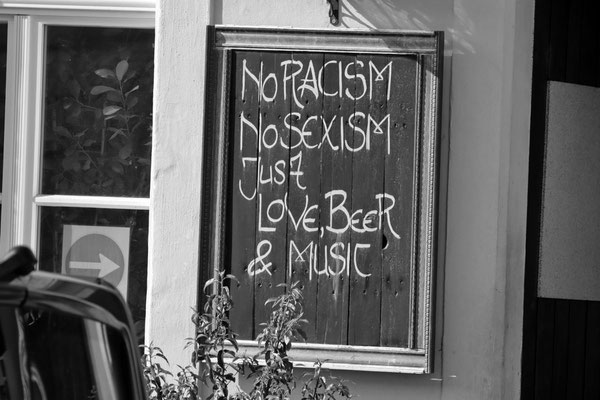 No RACISM
No SEXISM
JUST
LOVE, BEER
& MUSIC